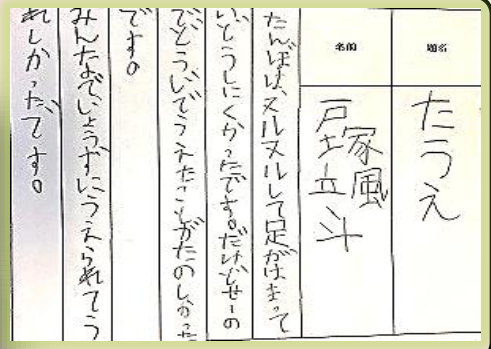 題名
たうえ
名前
戸塚風斗
たんぼは、ヌルヌルして足がはまって
いどうしにくかったです。だけどせーの
でどういでうえたことがたのしかった
です。
みんなでじょうずにうえられてう
れしかったです。